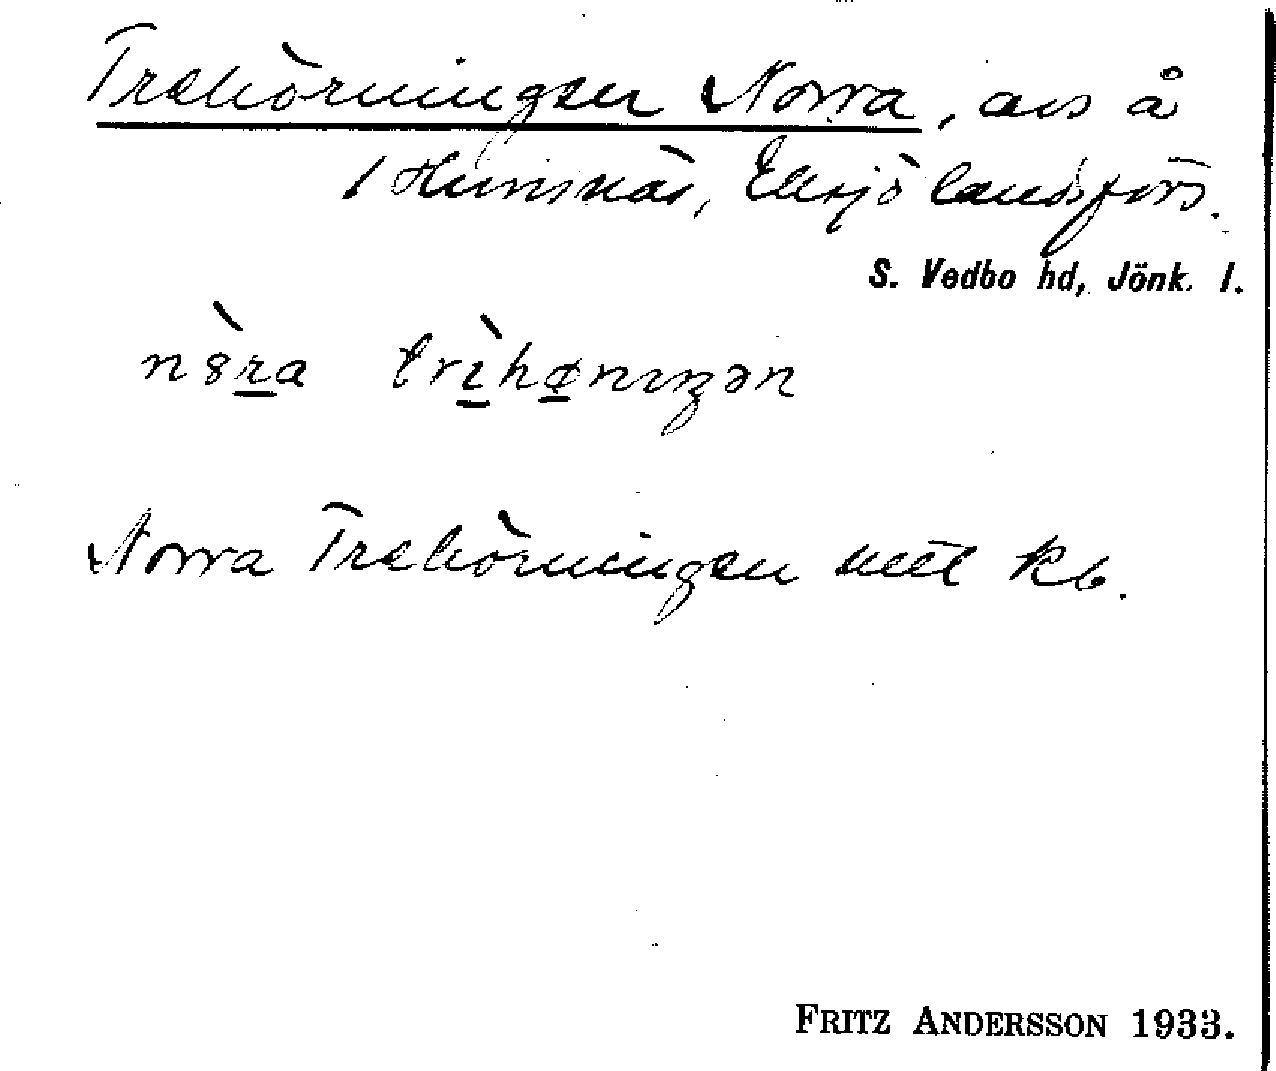 Trehörningen Norra, avs å
1 Hunsnäs, Eksjö landsförs.
S. Vedbo hd, Jönk. l.
nò̤ra trìhøniŋən
Norra Trehörningen utt kb.
FRITZ ANDERSSON 1933.